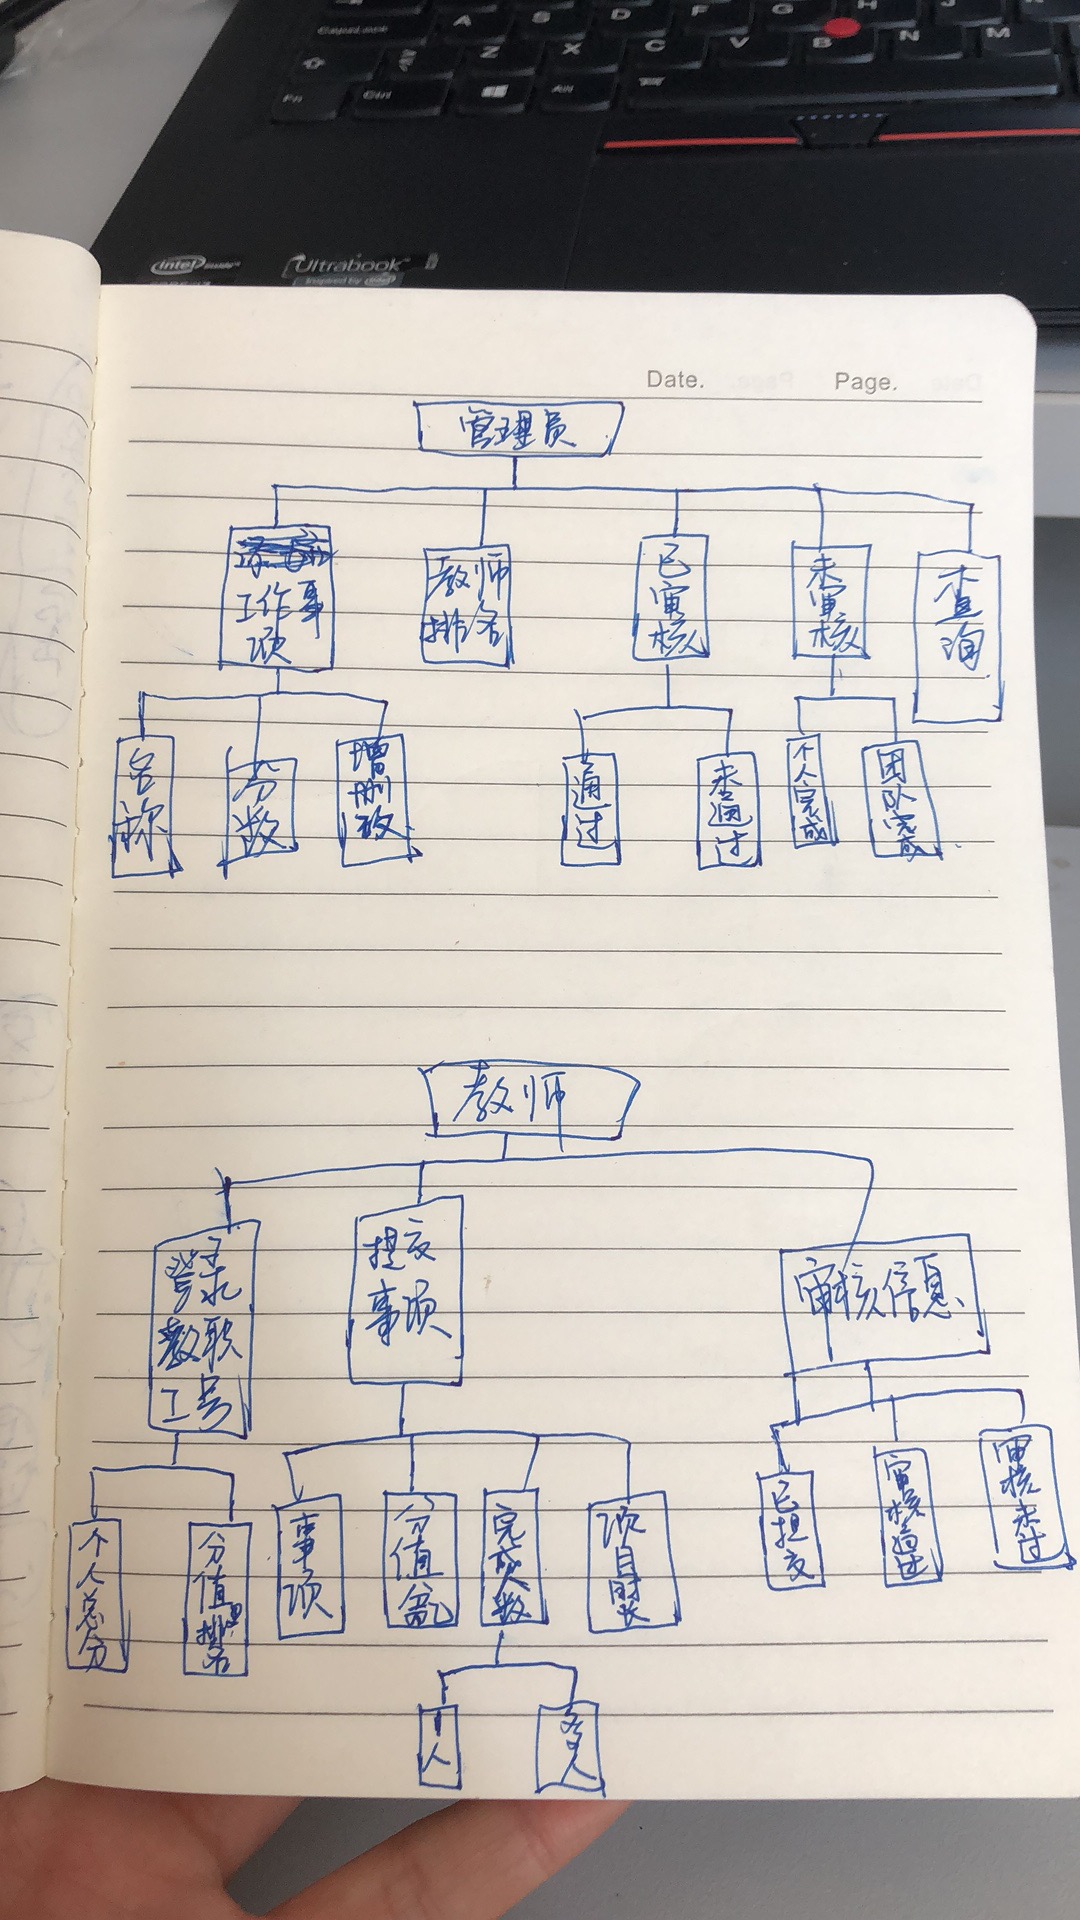 CapsLock A S D F G H J
Z X C V B N M
Fn Ctrl Alt
intel inside
Ultrabook
Inspired by intel
Date. Page.
管理员
工作事
项
教师
排名
已审核
未审核
查询
名称
分数
增删改
通过
未通过
个人完成
团队完成
教师
登录
教职
工号
提交
事项
审核信息
个人总分
分值排名
事项
分值
完成人数
项目时长
已提交
审核通过
审核未过
1人
多人